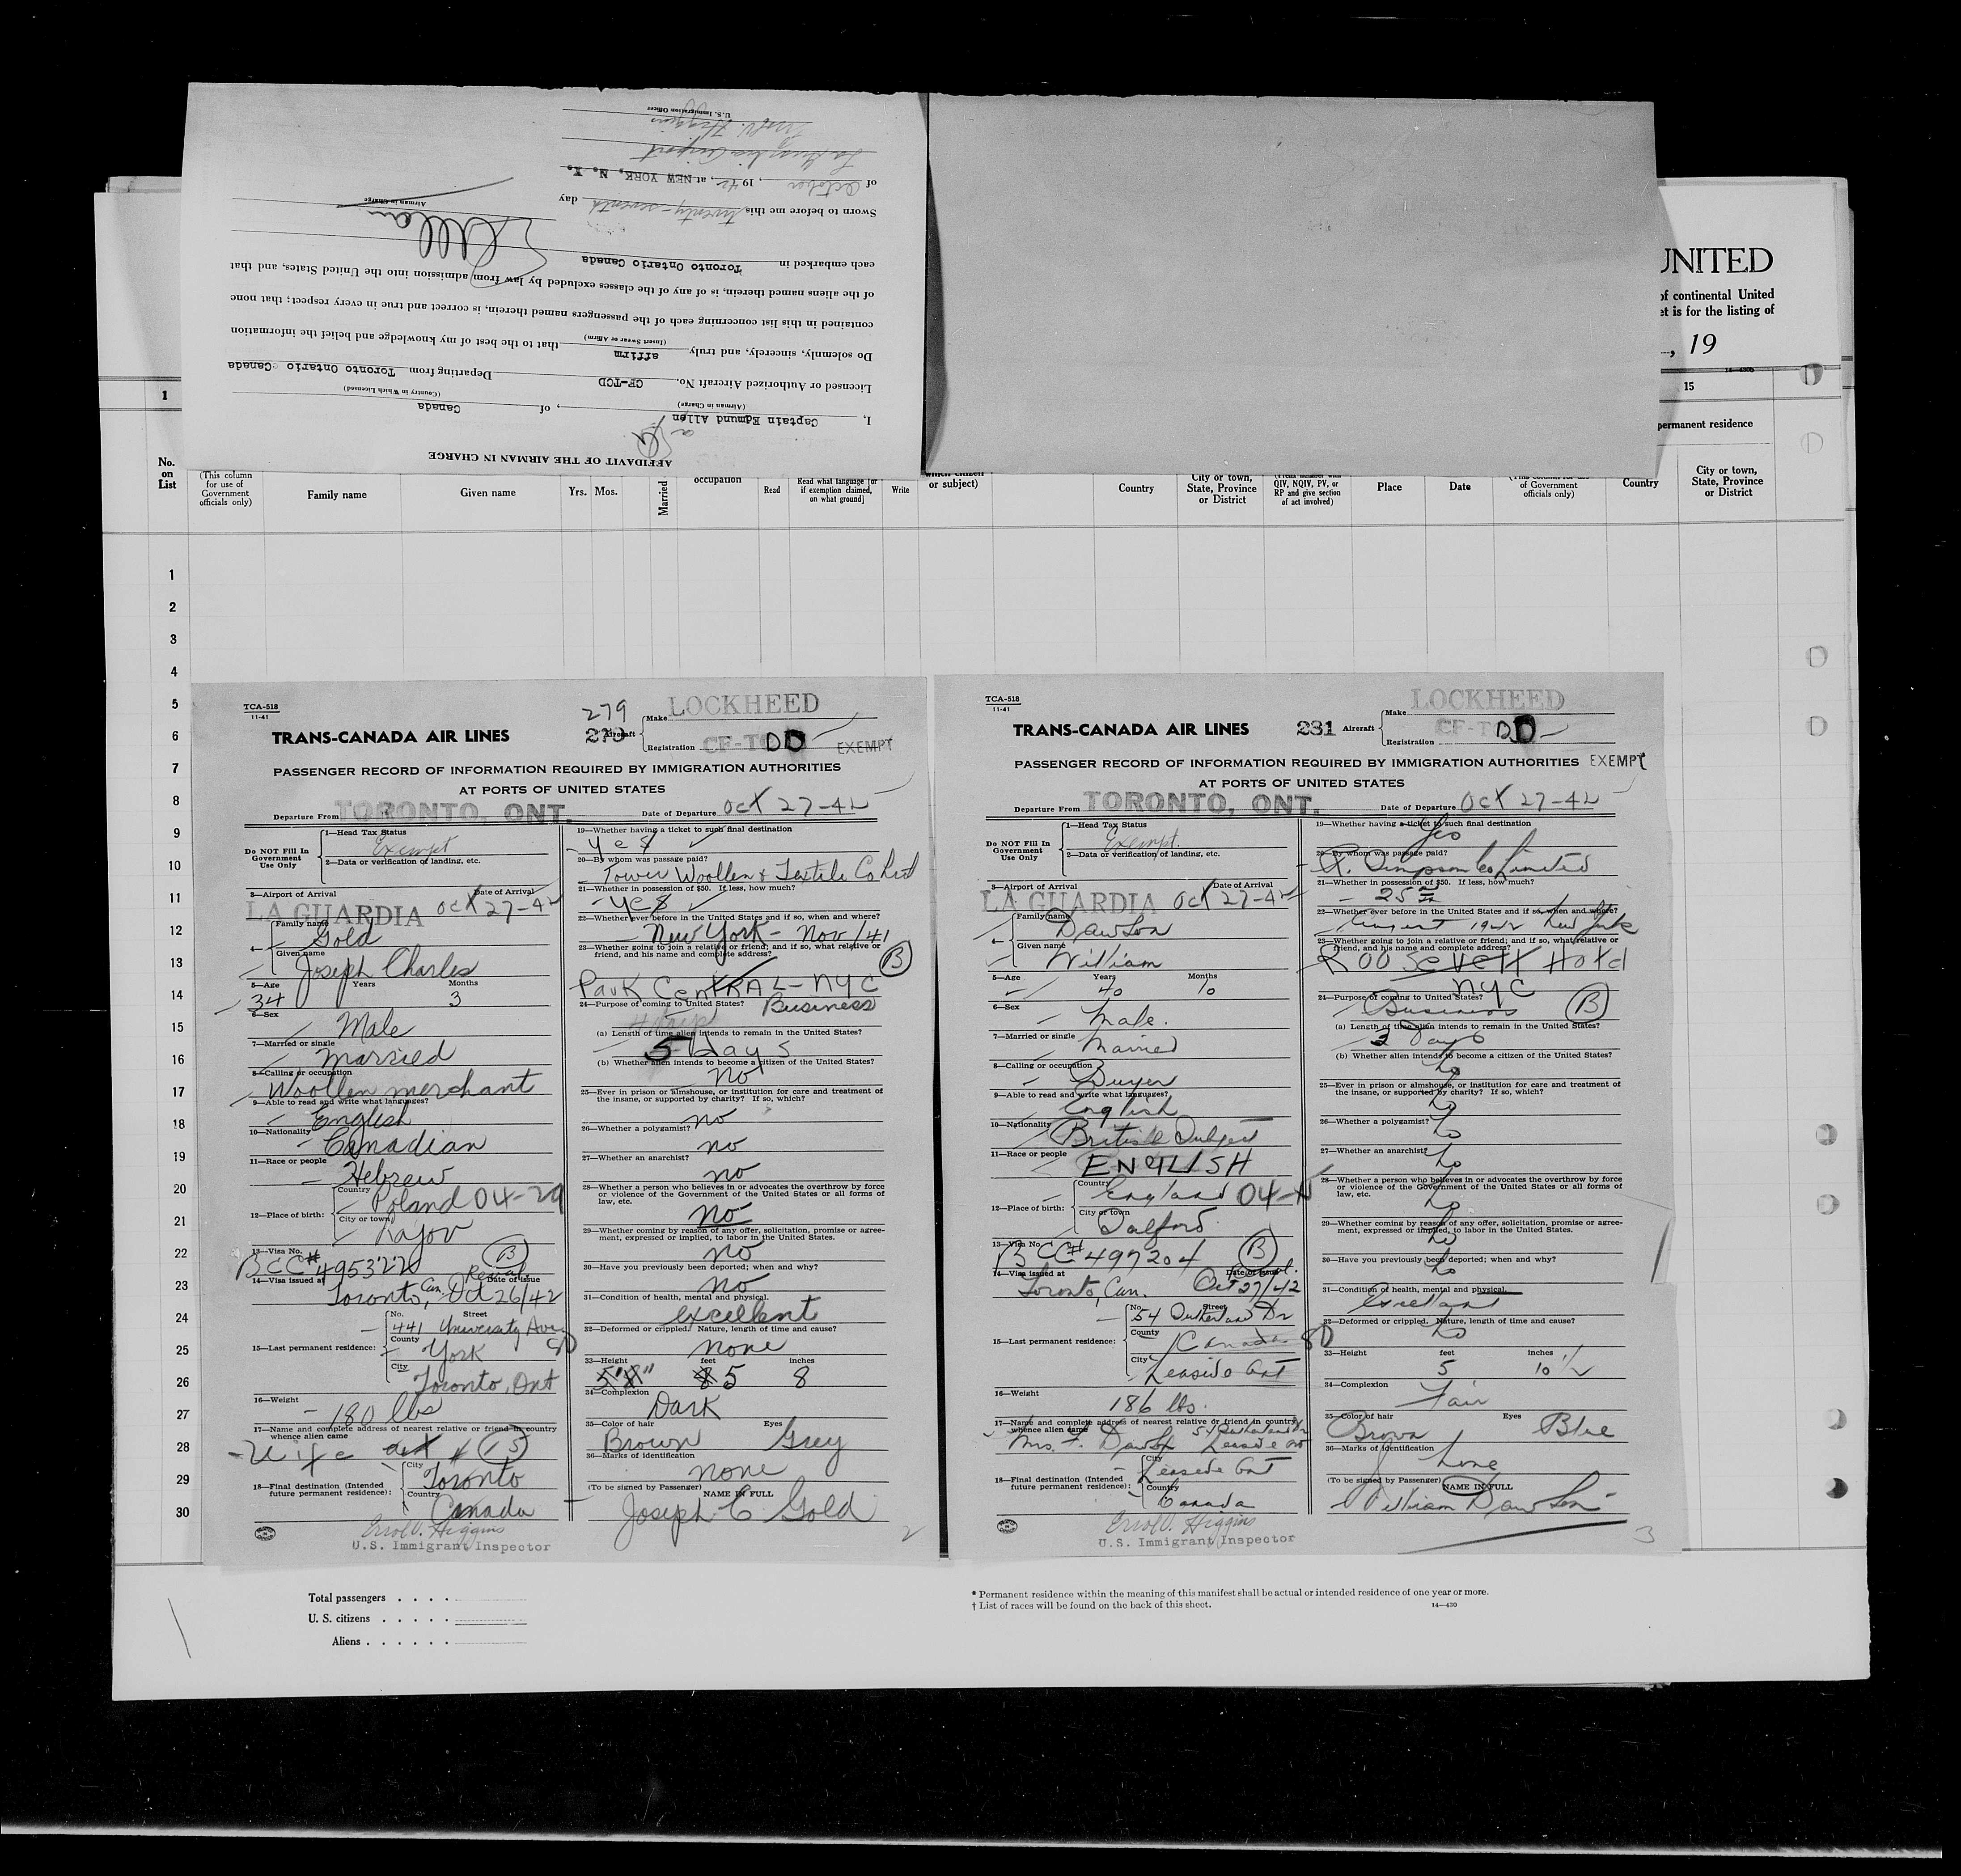 AFFIDAVIT OF THE AIRMAN IN CHARGE
I, Captain Edmund Allen, of Canada
(Airman in Charge) (Country in Which Licensed)
Licensed or Authorized Aircraft No. CF-TCD Departing from Toronto Ontario Canada
Do solemnly, sincerely, and truly affirm that to the best of my knowledge and belief the information
(Insert Swear or Affirm)
contained in this list concerning each of the passengers named therein, is correct and true in every respect; that none
of the aliens named therein, is of any of the classes excluded by law from admission into the United States, and that
each embarked in Toronto Ontario Canada
Airman in Charge
Sworn to before me this twenty-seventh day
of October, 1942, at NEW YORK, N. Y.
La Guardia Airport
Errol V. Higgins
U.S. Immigration Officer
UNITED
of continental United
et is for the listing of
, 19
1
15
permanent residence
No. on List
(This column for use of Government officials only)
Family name
Given name
Yrs. Mos.
Married
occupation
Read
Read what language [or if exemption claimed, on what ground]
Write
which citizen or subject)
Country
City or town, State, Province or District
QIV, NQIV, PV, or RP and give section of act involved)
Place
Date
of Government officials only)
Country
City or town, State, Province or District
1
2
3
4
5
6
7
8
9
10
11
12
13
14
15
16
17
18
19
20
21
22
23
24
25
26
27
28
29
30
TCA-518
11-41
279
LOCKHEED
Make
TRANS-CANADA AIR LINES
Aircraft
Registration CF-TCD D
EXEMPT
PASSENGER RECORD OF INFORMATION REQUIRED BY IMMIGRATION AUTHORITIES
AT PORTS OF UNITED STATES
Departure From TORONTO, ONT. Date of Departure Oct 27-42
Do NOT Fill In Government Use Only
1—Head Tax Status
Exempt
2—Data or verification of landing, etc.
3—Airport of Arrival Date of Arrival
LA GUARDIA Oct 27-42
4— Family name
Gold
Given name
Joseph Charles
5—Age Years Months
34 3
6—Sex
Male
7—Married or single
Married
8—Calling or occupation
Woollen merchant
9—Able to read and write what languages?
English
10—Nationality
Canadian
11—Race or people
Hebrew
12—Place of birth:
Country
Poland 04-29
City or town
13—Visa No.
BCC# 495322 B
14—Visa issued at Date of issue
Toronto, Can. Oct 26/42
15—Last permanent residence:
No. Street
441 University Ave.
County
York
City
Toronto, Ont
16—Weight
180 lbs
17—Name and complete address of nearest relative or friend in country whence alien came
Wife at # 15
18—Final destination (Intended future permanent residence):
City
Toronto
Country
Canada
Errol V. Higgins
U.S. Immigrant Inspector
19—Whether having a ticket to such final destination
Yes
20—By whom was passage paid?
Tower Woollen & Textile Co Ltd
21—Whether in possession of $50. If less, how much?
yes
22—Whether ever before in the United States and if so, when and where?
New York - Nov/41
23—Whether going to join a relative or friend; and if so, what relative or friend, and his name and complete address?
B
Park CentRAL - NYC
24—Purpose of coming to United States?
Business
(a) Length of time alien intends to remain in the United States?
5 Days
(b) Whether alien intends to become a citizen of the United States?
no
25—Ever in prison or almshouse, or institution for care and treatment of the insane, or supported by charity? If so, which?
no
26—Whether a polygamist?
no
27—Whether an anarchist?
no
28—Whether a person who believes in or advocates the overthrow by force or violence of the Government of the United States or all forms of law, etc.
no
29—Whether coming by reason of any offer, solicitation, promise or agreement, expressed or implied, to labor in the United States.
no
30—Have you previously been deported; when and why?
no
31—Condition of health, mental and physical.
excellent
32—Deformed or crippled. Nature, length of time and cause?
none
33—Height feet inches
5'8" 5 8
34—Complexion
Dark
35—Color of hair Eyes
Brown Grey
36—Marks of identification
none
(To be signed by Passenger) NAME IN FULL
Joseph C Gold
2
TCA-518
11-41
LOCKHEED
Make
TRANS-CANADA AIR LINES
281 Aircraft
Registration CF-T DD
PASSENGER RECORD OF INFORMATION REQUIRED BY IMMIGRATION AUTHORITIES EXEMPT
AT PORTS OF UNITED STATES
Departure From TORONTO, ONT. Date of Departure Oct 27-42
Do NOT Fill In Government Use Only
1—Head Tax Status
Exempt.
2—Data or verification of landing, etc.
3—Airport of Arrival Date of Arrival
LA GUARDIA Oct 27-42
4— Family name
Dawson
Given name
William
5—Age Years Months
40 10
6—Sex
Male.
7—Married or single
Married
8—Calling or occupation
Buyer
9—Able to read and write what languages?
English
10—Nationality
British Subject
11—Race or people
ENGLISH
12—Place of birth:
Country
England 04-
City or town
Salford
13—Visa No.
BCC# 497204 B
14—Visa issued at Date of issue
Toronto, Can. Oct 27/42
15—Last permanent residence:
No. Street
54 Sutherland Dr
County
Canada
City
Leaside Ont
16—Weight
186 lbs.
17—Name and complete address of nearest relative or friend in country whence alien came
Mrs. F. Dawson 54 Sutherland Dr Leaside Ont
18—Final destination (Intended future permanent residence):
City
Leaside Ont
Country
Canada
Errol V. Higgins
U.S. Immigrant Inspector
19—Whether having a ticket to such final destination
Yes
20—By whom was passage paid?
R. Simpson Co Limited
21—Whether in possession of $50. If less, how much?
25
22—Whether ever before in the United States and if so, when and where?
August 1942 New York
23—Whether going to join a relative or friend; and if so, what relative or friend, and his name and complete address?
Roosevelt Hotel
NYC
24—Purpose of coming to United States?
Business B
(a) Length of time alien intends to remain in the United States?
3 Days
(b) Whether alien intends to become a citizen of the United States?
No
25—Ever in prison or almshouse, or institution for care and treatment of the insane, or supported by charity? If so, which?
No
26—Whether a polygamist?
No
27—Whether an anarchist?
No
28—Whether a person who believes in or advocates the overthrow by force or violence of the Government of the United States or all forms of law, etc.
No
29—Whether coming by reason of any offer, solicitation, promise or agreement, expressed or implied, to labor in the United States.
No
30—Have you previously been deported; when and why?
No
31—Condition of health, mental and physical.
Excellent
32—Deformed or crippled. Nature, length of time and cause?
No
33—Height feet inches
5 10 1/2
34—Complexion
Fair
35—Color of hair Eyes
Brown Blue
36—Marks of identification
None
(To be signed by Passenger) NAME IN FULL
William Dawson
3
Total passengers . . . .
U. S. citizens . . . . .
Aliens . . . . . .
* Permanent residence within the meaning of this manifest shall be actual or intended residence of one year or more.
† List of races will be found on the back of this sheet.
14—430